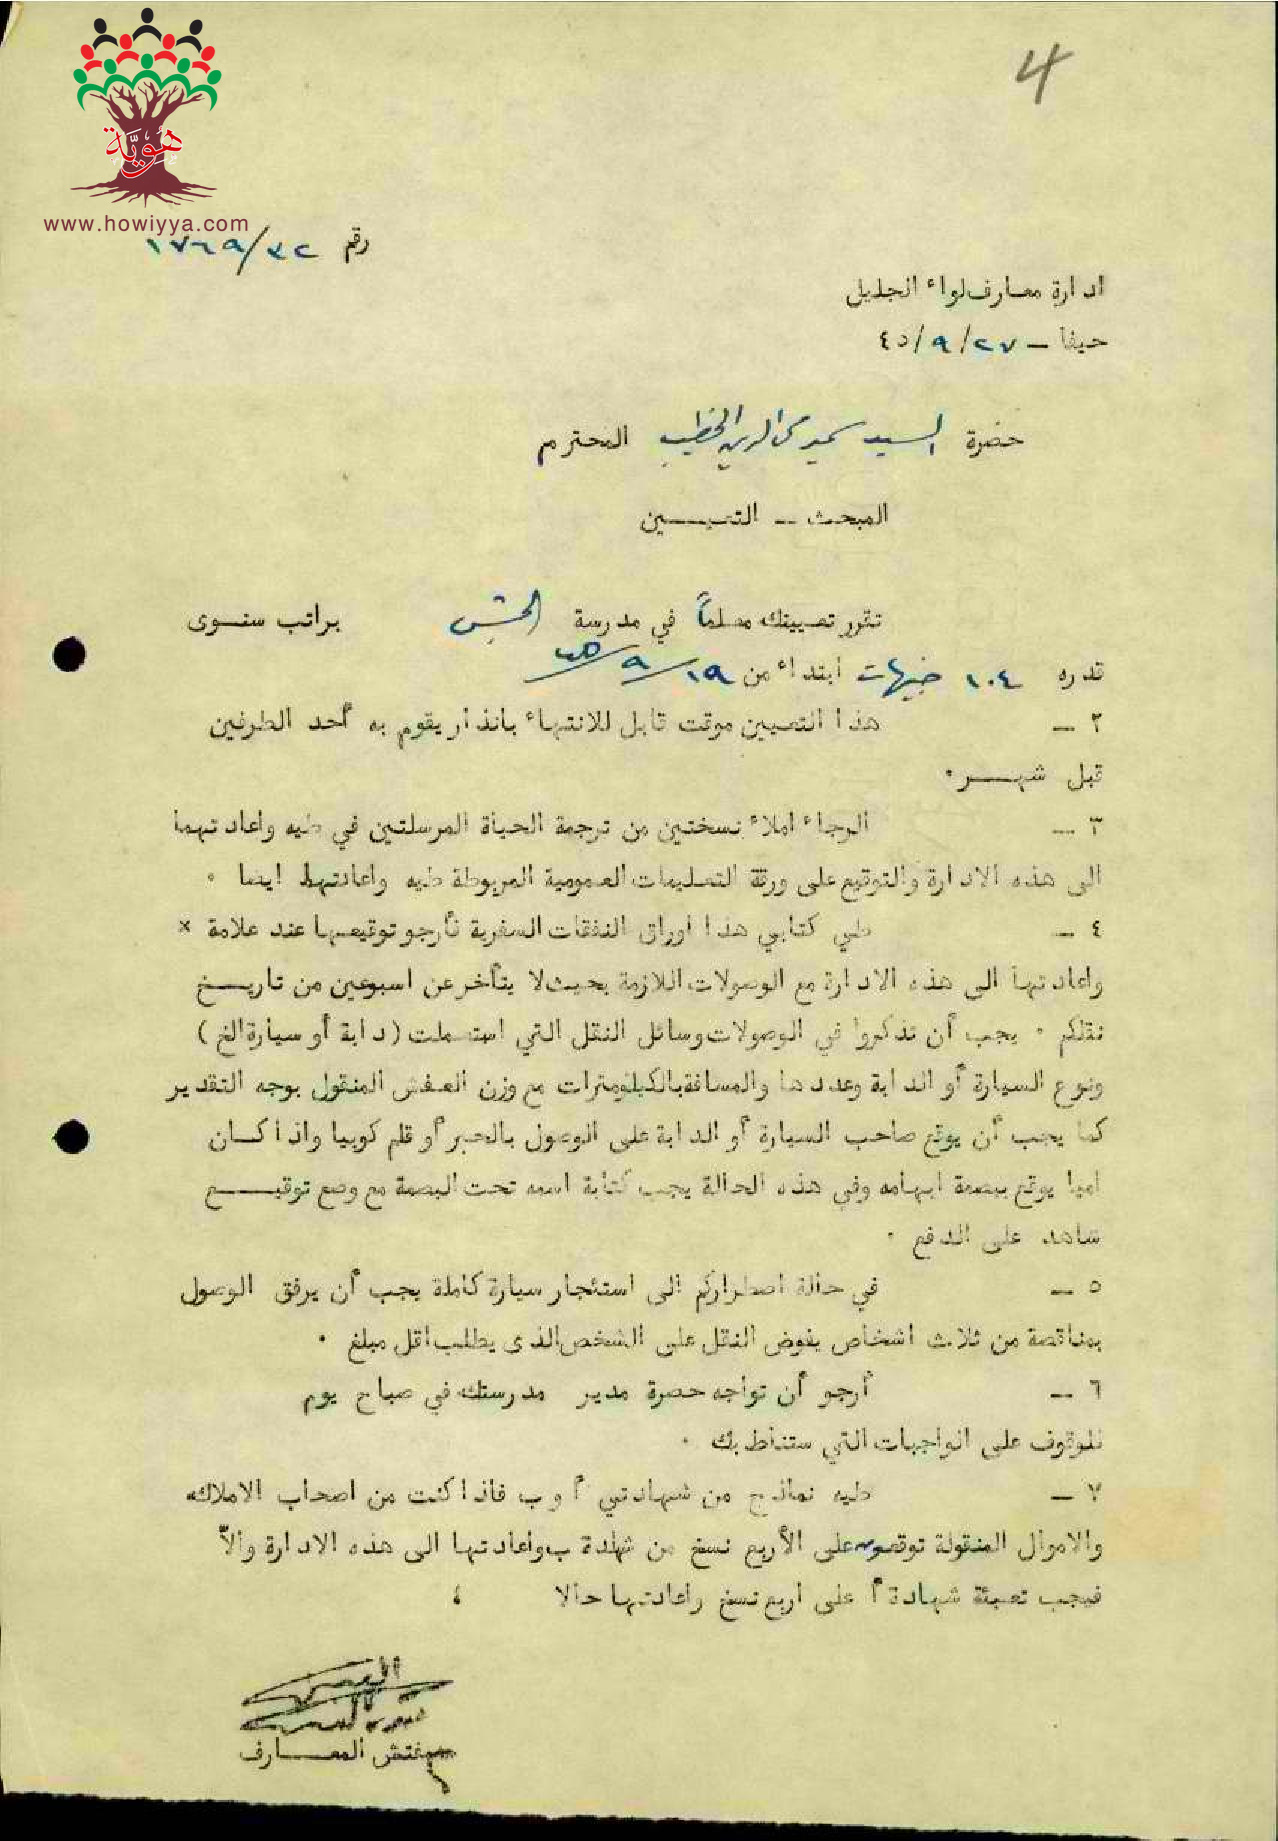 4
هُوِيَّة
www.howiyya.com
رقم ٣٢/١٧٦٩
ادارة معارف لواء الجليل
حيفا – ٢٧/٩/٤٥
حضرة السيد سميح محي الدين الخطيب المحترم
المبحث – التعيين
تقرر تعيينك معلماً في مدرسة الجش براتب سنوى
قدره ١٠٤ جنيهات ابتداء من ١٩/٩/٤٥
٢ – هذا التعيين موقت قابل للانتهاء بانذار يقوم به أحد الطرفين
قبل شهر.
٣ – الرجاء املاء نسختين من ترجمة الحياة المرسلتين في طيه واعادتهما
الى هذه الادارة والتوقيع على ورقة التعليمات العمومية المربوطة طيه واعادتها ايضا .
٤ – طي كتابي هذا اوراق النفقات السفرية فأرجو توقيعها عند علامة ×
واعادتها الى هذه الادارة مع الوصولات اللازمة بحيث لا يتأخر عن اسبوعين من تاريخ
نقلكم . يجب أن تذكروا في الوصولات وسائل النقل التي استعملت (دابة أو سيارة الخ)
ونوع السيارة أو الدابة وعددها والمسافة بالكيلومترات مع وزن العفش المنقول بوجه التقدير
كما يجب أن يوقع صاحب السيارة أو الدابة على الوصول بالحبر أو قلم كوبيا واذا كان
اميا يوقع ببصمة ابهامه وفي هذه الحالة يجب كتابة اسمه تحت البصمة مع وضع توقيع
شاهد على الدفع .
٥ – في حالة اضطراركم الى استئجار سيارة كاملة يجب أن يرفق الوصول
بمناقصة من ثلاث اشخاص يفوض النقل على الشخص الذى يطلب اقل مبلغ .
٦ – أرجو أن تواجه حضرة مدير مدرستك في صباح يوم
للوقوف على الواجبات التي ستناط بك .
٧ – طيه نماذج من شهادتي أ و ب فاذا كنت من اصحاب الاملاك
والاموال المنقولة توقعون على الأربع نسخ من شهادة ب واعادتها الى هذه الادارة والاّ
فيجب تعبئة شهادة أ على اربع نسخ واعادتها حالا ،
مفتش المعارف